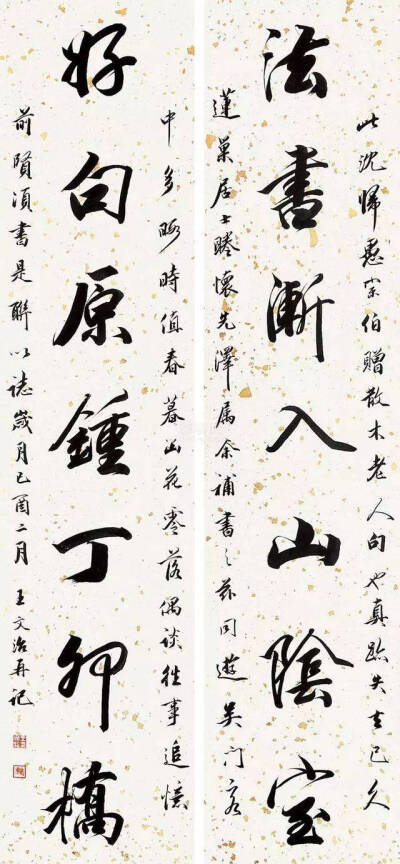 此沈歸愚宗伯贈散木老人句也真跡失去已久
法書漸入山陰室
蓮巢居士睠懷先澤屬余補書之茲同遊吳門客
中多暇時值春暮山花零落偶談往事追憶
好句原鍾丁卯橋
前賢須書是聯以誌歲月己酉二月 王文治再記